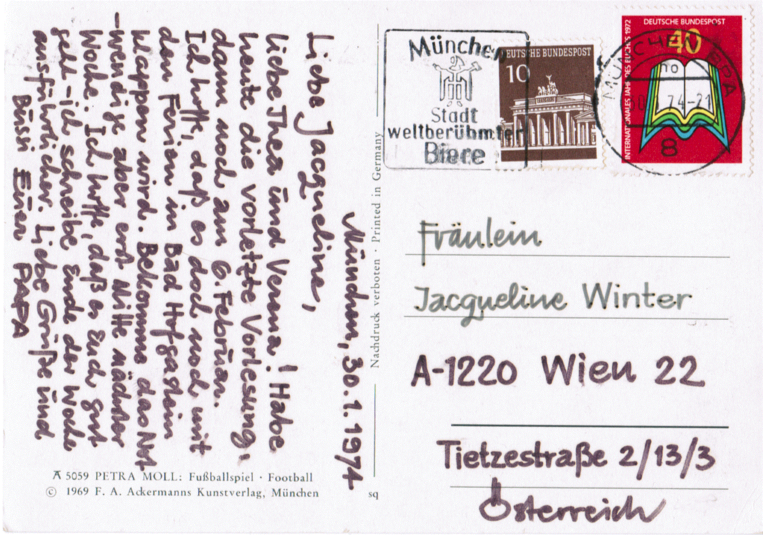 München, 30.1.1974
Liebe Jacqueline,
liebe Thea und Verena! Habe
heute die vorletzte Vorlesung,
dann noch am 6. Februar.
Ich hoffe, daß es doch noch mit
den Ferien in Bad Hofgastein
klappen wird. Bekomme das Not
-wendige aber erst Mitte nächster
Woche. Ich hoffe, daß es Euch gut
geht - ich schreibe Ende der Woche
ausführlicher. Liebe Grüße und
Bussi Euer PAPA
5059 PETRA MOLL: Fußballspiel · Football
© 1969 F. A. Ackermanns Kunstverlag, München
Nachdruck verboten · Printed in Germany
sq
München
Stadt
weltberühmter
Biere
DEUTSCHE BUNDESPOST
10
DEUTSCHE BUNDESPOST
40
INTERNATIONALES JAHR DES BUCHES 1972
MÜNCHEN
74-21
8
Fräulein
Jacqueline Winter
A-1220 Wien 22
Tietzestraße 2/13/3
Österreich